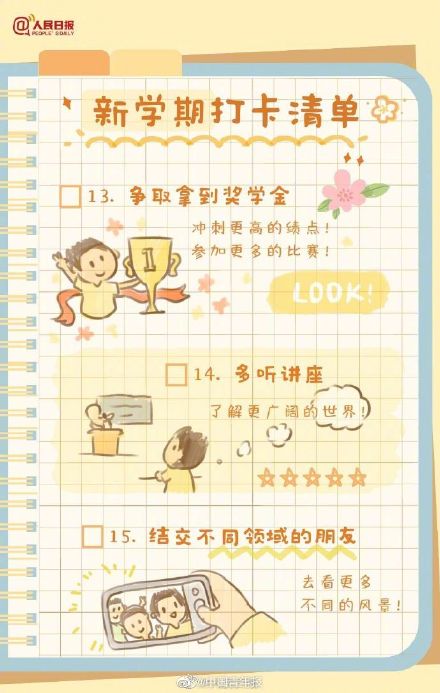 @人民日报
PEOPLE'S DAILY
新学期打卡清单
13. 争取拿到奖学金
冲刺更高的绩点!
参加更多的比赛!
1
LOOK!
14. 多听讲座
了解更广阔的世界!
15. 结交不同领域的朋友
去看更多
不同的风景!
@中国青年报